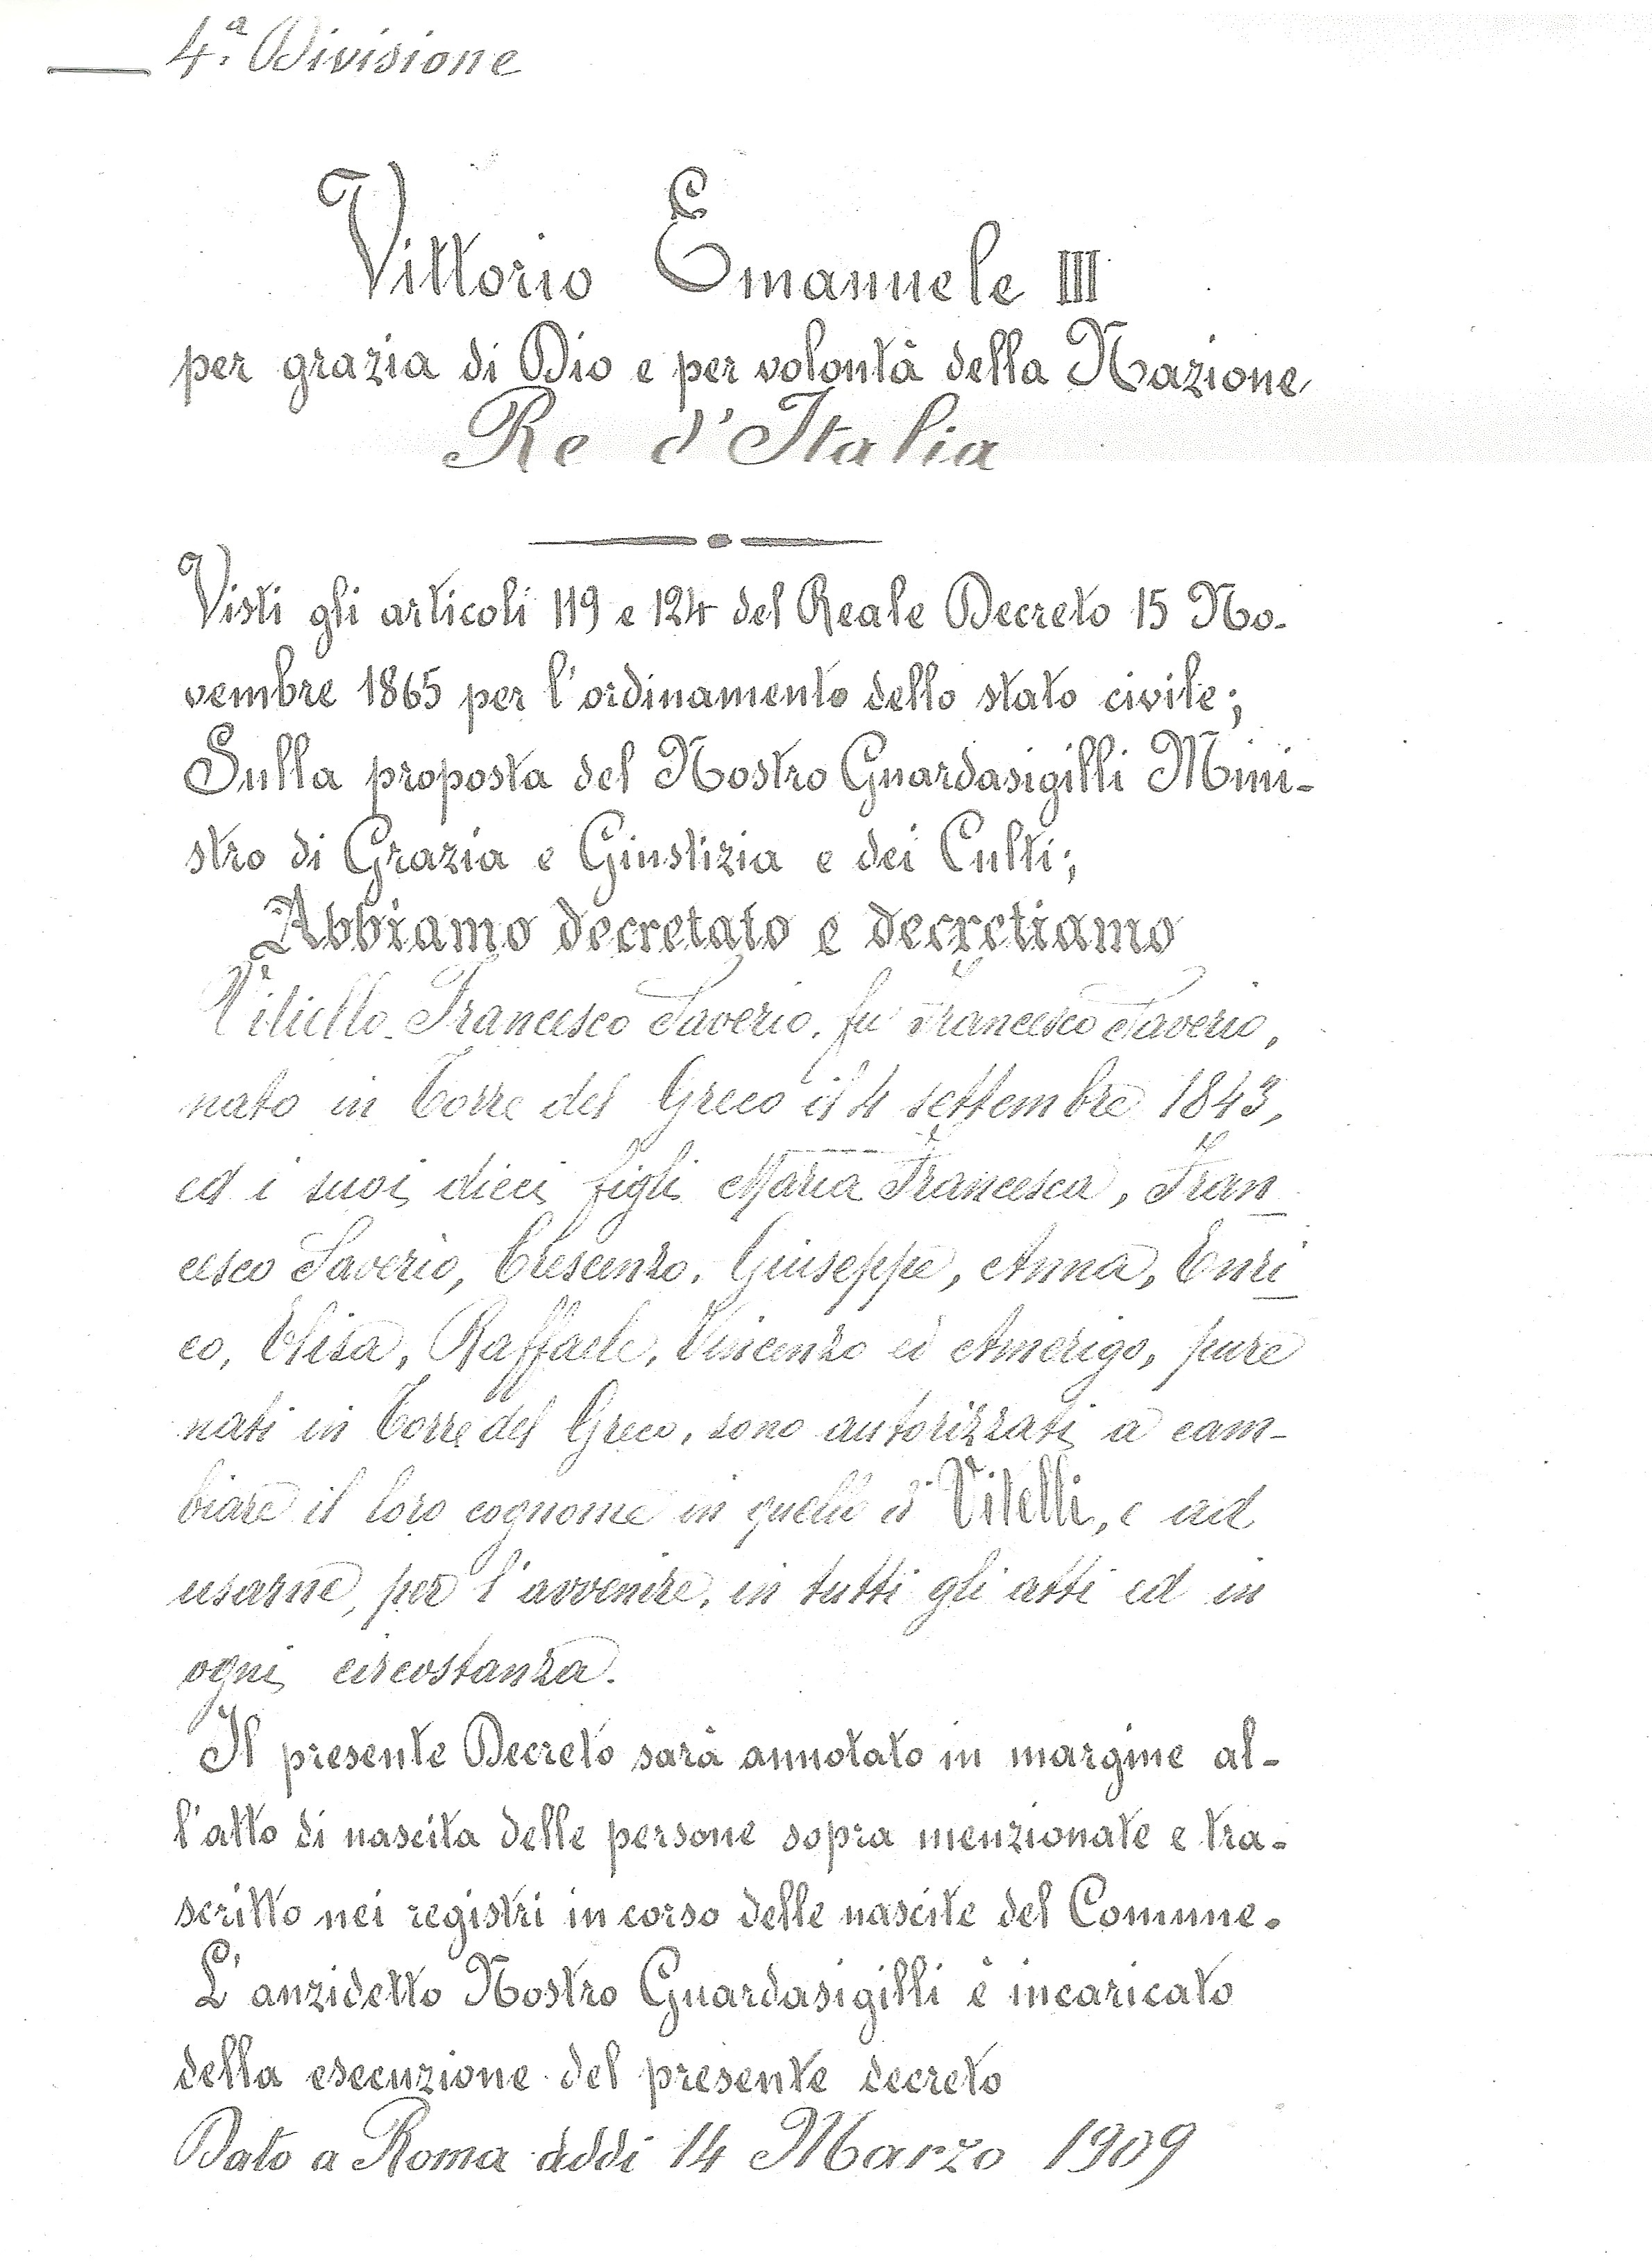 4.ª Divisione
Vittorio Emanuele III
per grazia di Dio e per volontà della Nazione
Re d'Italia
Visti gli articoli 119 e 124 del Reale Decreto 15 No-
vembre 1865 per l'ordinamento dello stato civile;
Sulla proposta del Nostro Guardasigilli Mini-
stro di Grazia e Giustizia e dei Culti;
Abbiamo decretato e decretiamo
Vitiello Francesco Saverio, fu Francesco Saverio,
nato in Torre del Greco il 4 settembre 1843,
ed i suoi dieci figli Maria Francesca, Fran
cesco Saverio, Crescenzo, Giuseppe, Anna, Enri
co, Elisa, Raffaele, Vincenzo ed Amerigo, pure
nati in Torre del Greco, sono autorizzati a cam-
biare il loro cognome in quello di Vitelli, e ad
usarne, per l'avvenire, in tutti gli atti ed in
ogni circostanza.
Il presente Decreto sarà annotato in margine al-
l'atto di nascita delle persone sopra menzionate e tra-
scritto nei registri in corso delle nascite del Comune.
L'anzidetto Nostro Guardasigilli è incaricato
della esecuzione del presente decreto
Dato a Roma addì 14 Marzo 1909